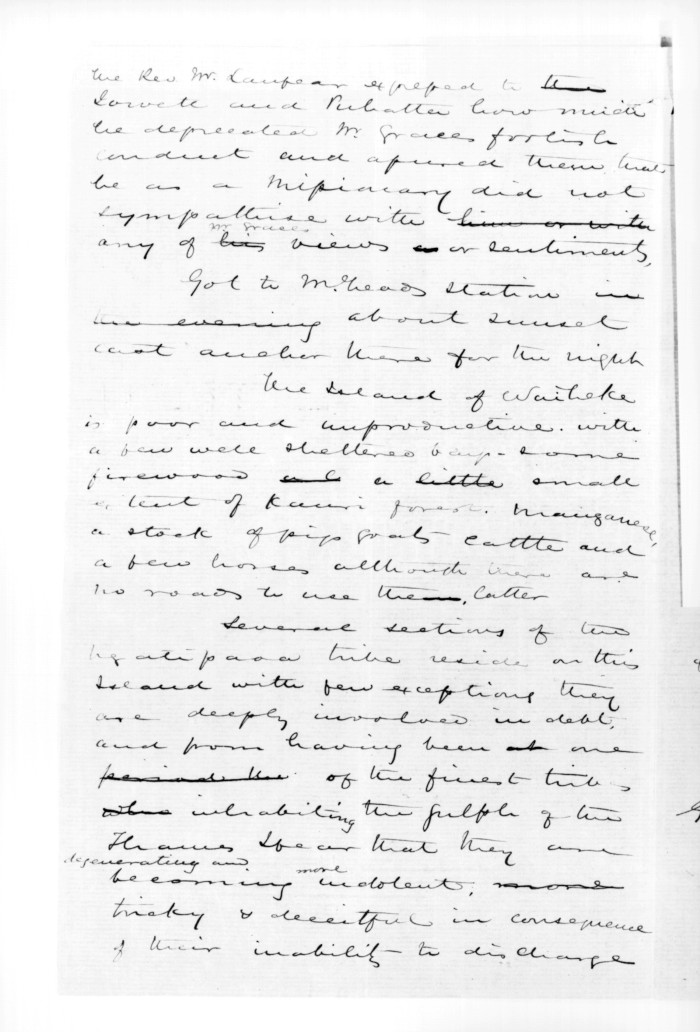 the Rev Mr. Lanfear expressed to the
Lowell and Puhatta how much
he deprecated Mr. Graces foolish
conduct and assured them that
he as a Missionary did not
sympathise with him or with
Mr Graces
any of his views or sentiments,
Got to McLeods station in
the evening about sunset
cast anchor there for the night
The Island of Waiheke
is poor and unproductive. with
a few well sheltered bays - some
firewood and a little small
extent of Kauri forest. Manganese,
a stock of pigs goats cattle and
a few horses although there are
no roads to use them, latter
Several sections of the
Ngatipaoa tribe reside on this
Island with few exceptions they
are deeply involved in debt,
and from having been at one
period the of the finest tribes
who inhabiting the gulph of the
Thames I fear that they are
degenerating and more
becoming indolent, more
tricky & deceitful in consequence
of their inability to discharge